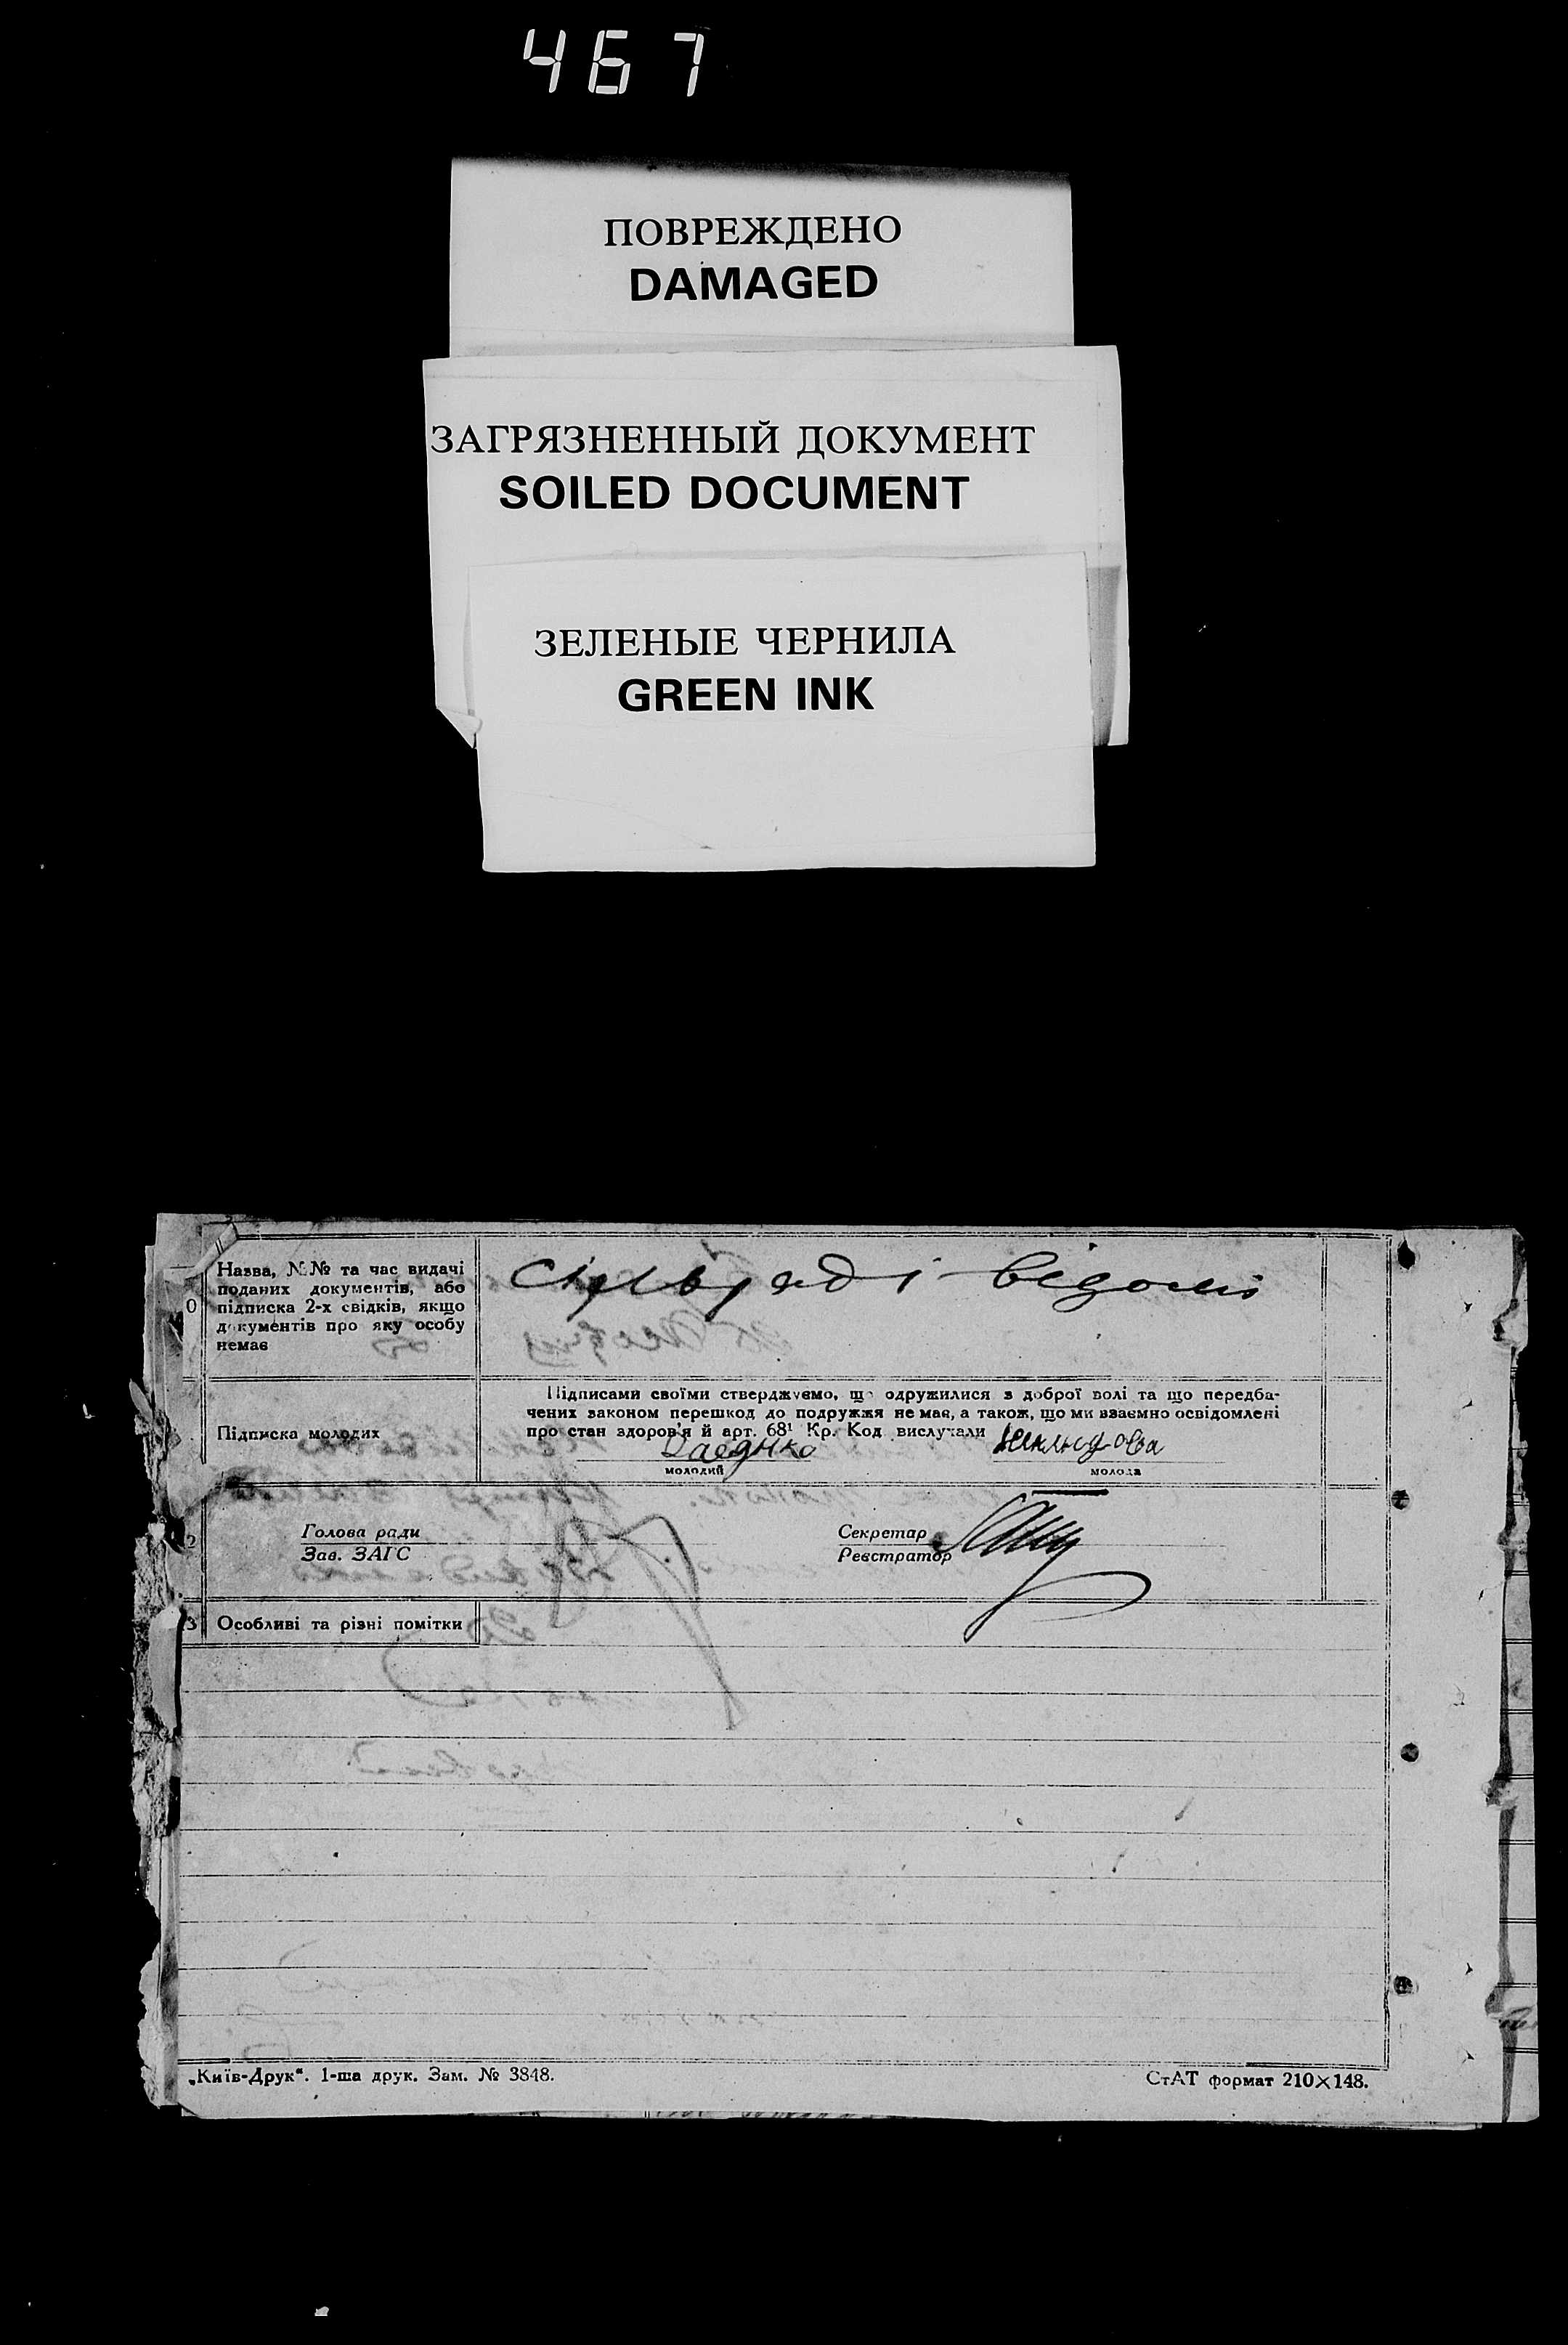 467
ПОВРЕЖДЕНО
DAMAGED
ЗАГРЯЗНЕННЫЙ ДОКУМЕНТ
SOILED DOCUMENT
ЗЕЛЕНЫЕ ЧЕРНИЛА
GREEN INK
Назва, №№ та час видачі
поданих документів, або
підписка 2-х свідків, якщо
документів про яку особу
немає
0
сільраді відомі
Підписка молодих
Підписами своїми стверджуємо, що одружилися з доброї волі та що передба-
чених законом перешкод до подружжя не має, а також, що ми взаємно освідомлені
про стан здоров'я й арт. 68¹ Кр. Код вислухали
молодий
молода
2
Голова ради
Зав. ЗАГС
Секретар
Реєстратор
3 Особливі та різні помітки
„Київ-Друк“. 1-ша друк. Зам. № 3848.
СтАТ формат 210×148.